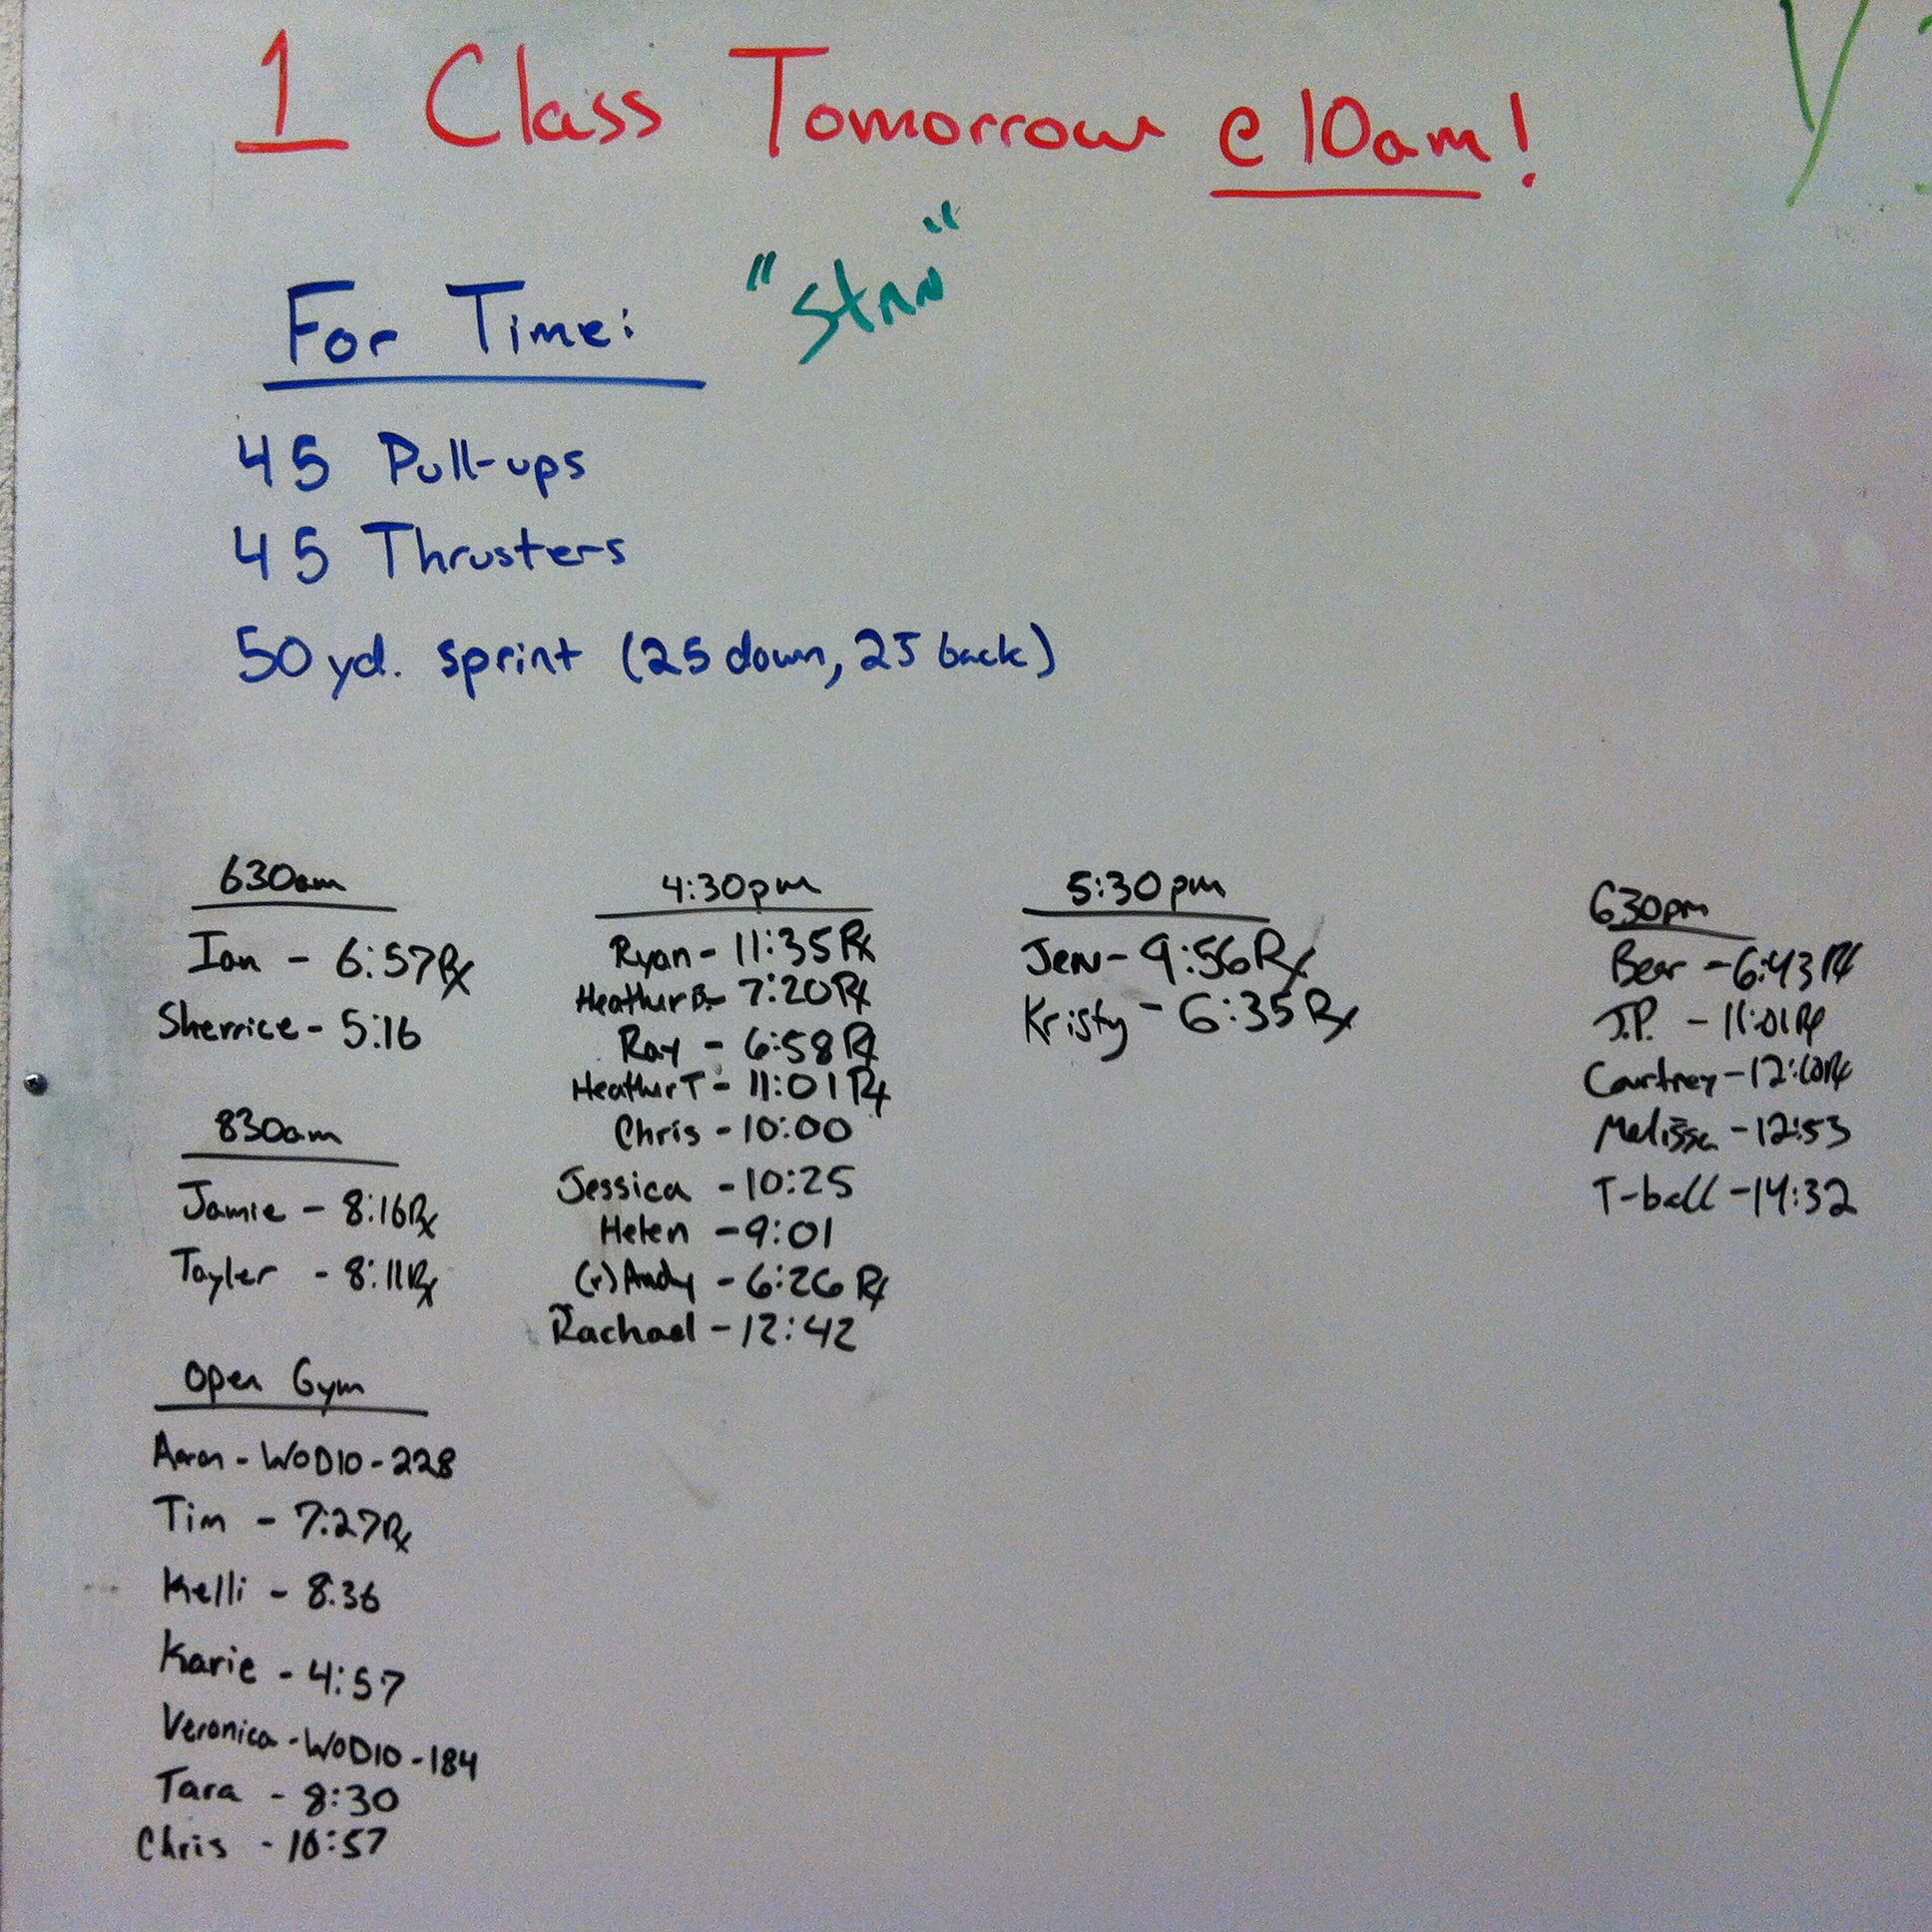 1 Class Tomorrow @ 10am!
"Stan"
For Time:
45 Pull-ups
45 Thrusters
50 yd. sprint (25 down, 25 back)
630am
Ian - 6:57 Rx
Sherrice - 5:16
830am
Jamie - 8:16 Rx
Tayler - 8:11 Rx
Open Gym
Aaron - WOD10 - 228
Tim - 7:27 Rx
Kelli - 8:36
Karie - 4:57
Veronica - WOD10 - 184
Tara - 8:30
Chris - 10:57
4:30pm
Ryan - 11:35 Rx
Heather B. - 7:20 Rx
Ray - 6:58 Rx
Heather T - 11:01 Rx
Chris - 10:00
Jessica - 10:25
Helen - 9:01
(r) Andy - 6:26 Rx
Rachael - 12:42
5:30pm
Jen - 9:56 Rx
Kristy - 6:35 Rx
630pm
Bear - 6:43 Rx
J.P. - 11:01 Rx
Courtney - Rx
Melissa - 12:53
T-ball - 14:32